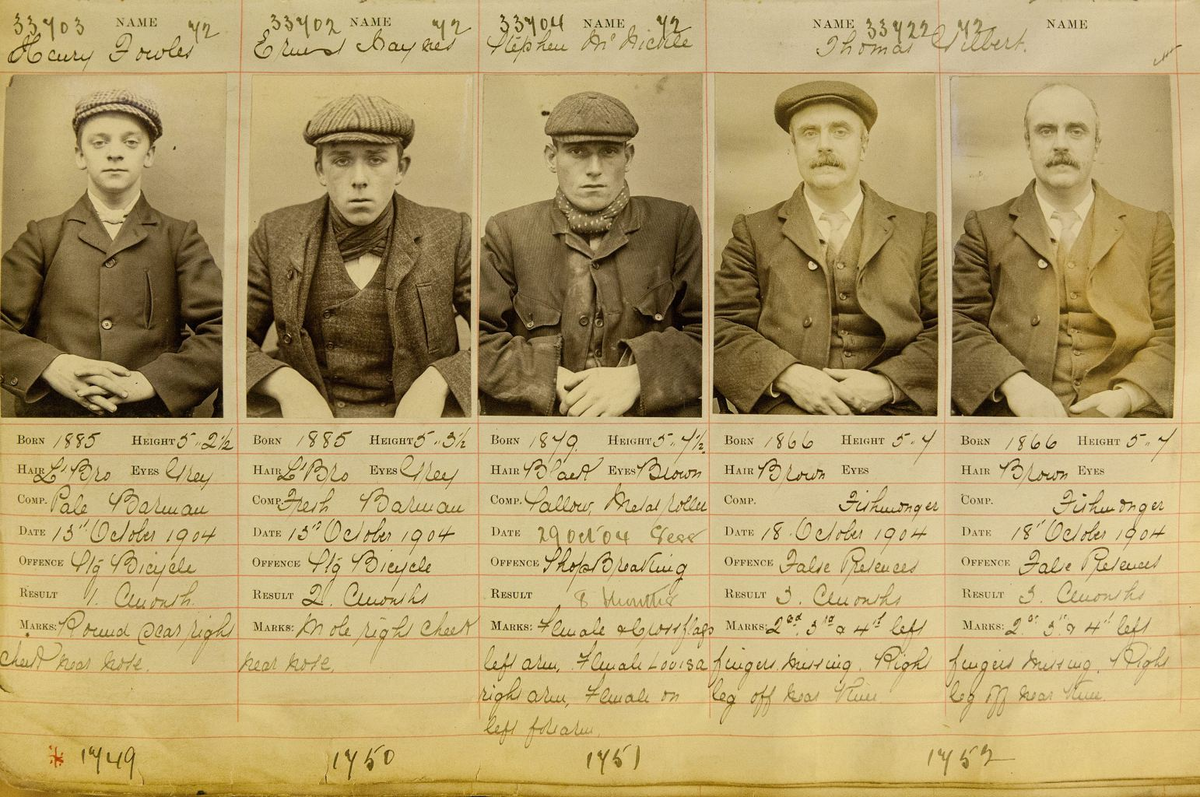 33703 NAME 72
Henry Fowler
33702 NAME 72
Ernest Haynes
33704 NAME 72
Stephen McNickle
NAME 33722 72 NAME
Thomas Gilbert.
BORN 1885 HEIGHT 5-2½
HAIR Lt Bro EYES Grey
COMP. Pale Barman
DATE 13th October 1904
OFFENCE Stg Bicycle
RESULT 1. Month.
MARKS: Round scar right
cheek near nose.
1749
BORN 1885 HEIGHT 5-3½
HAIR Lt Bro EYES Grey
COMP. Fresh Barman
DATE 13th October 1904
OFFENCE Stg Bicycle
RESULT 2. Months
MARKS: Mole right cheek
near nose.
1750
BORN 1879. HEIGHT 5-7½.
HAIR Black EYES Brown
COMP. Sallow, Metal roller
DATE 29 Oct 04 Sess
OFFENCE Shop Breaking
RESULT 8 Months
MARKS: Female & Cross flags
left arm, Female Louisa
right arm, Female on
left forearm.
1751
BORN 1866 HEIGHT 5-7
HAIR Brown EYES
COMP. Fishmonger
DATE 18. October 1904
OFFENCE False Pretences
RESULT 3. Months
MARKS: 2nd, 3rd & 4th left
fingers missing. Right
leg off near knee
BORN 1866 HEIGHT 5-7
HAIR Brown EYES
COMP. Fishmonger
DATE 18th October 1904
OFFENCE False Pretences
RESULT 3. Months
MARKS: 2nd 3rd & 4th left
fingers missing. Right
leg off near knee
1752